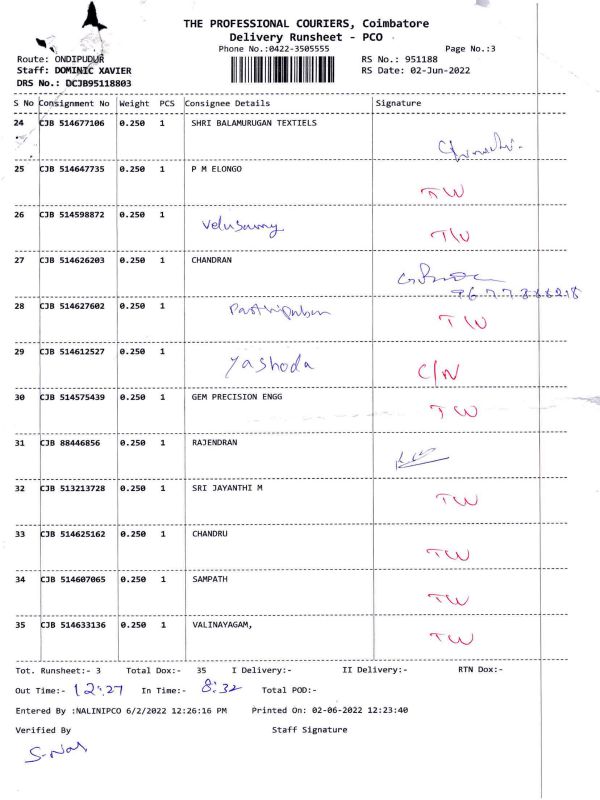 THE PROFESSIONAL COURIERS, Coimbatore
Delivery Runsheet - PCO
Phone No.:0422-3505555 Page No.:3
Route: ONDIPUDUR RS No.: 951188
Staff: DOMINIC XAVIER RS Date: 02-Jun-2022
DRS No.: DCJB95118803
S No Consignment No Weight PCS Consignee Details Signature
24 CJB 514677106 0.250 1 SHRI BALAMURUGAN TEXTIELS
25 CJB 514647735 0.250 1 P M ELONGO TW
26 CJB 514598872 0.250 1 Velusamy TW
27 CJB 514626203 0.250 1 CHANDRAN
28 CJB 514627602 0.250 1 TW
29 CJB 514612527 0.250 1 Yashoda C/N
30 CJB 514575439 0.250 1 GEM PRECISION ENGG TW
31 CJB 88446856 0.250 1 RAJENDRAN
32 CJB 513213728 0.250 1 SRI JAYANTHI M TW
33 CJB 514625162 0.250 1 CHANDRU TW
34 CJB 514607065 0.250 1 SAMPATH TW
35 CJB 514633136 0.250 1 VALINAYAGAM, TW
Tot. Runsheet:- 3 Total Dox:- 35 I Delivery:- II Delivery:- RTN Dox:-
Out Time:- 12:27 In Time:- 8:32 Total POD:-
Entered By :NALINIPCO 6/2/2022 12:26:16 PM Printed On: 02-06-2022 12:23:40
Verified By Staff Signature